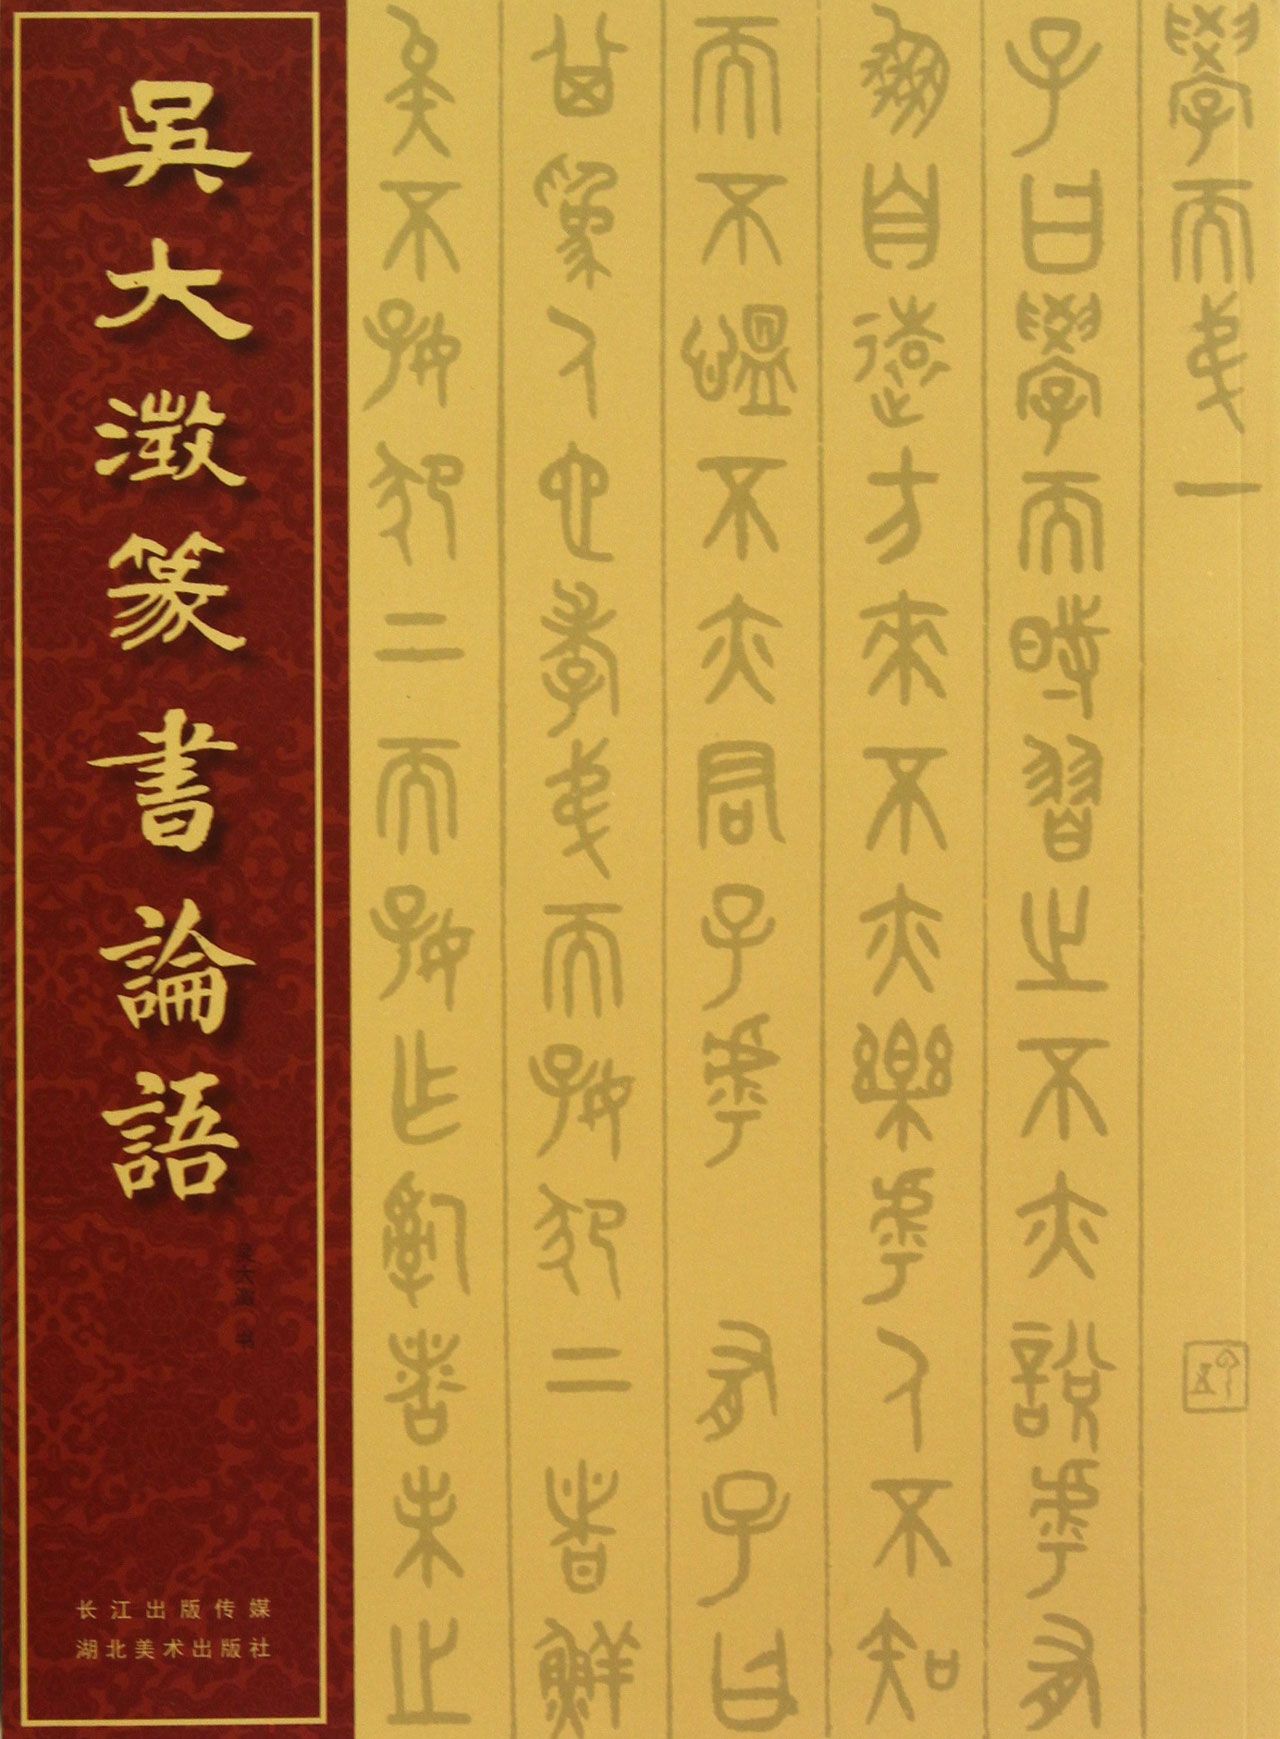 學而弟一
子曰學而時習之不亦說乎有
朋自遠方來不亦樂乎人不知
而不慍不亦君子乎 有子曰
其為人也孝弟而好犯上者鮮
矣不好犯上而好作亂者未之
吳大澂篆書論語
吴大澂 书
长江出版传媒
湖北美术出版社